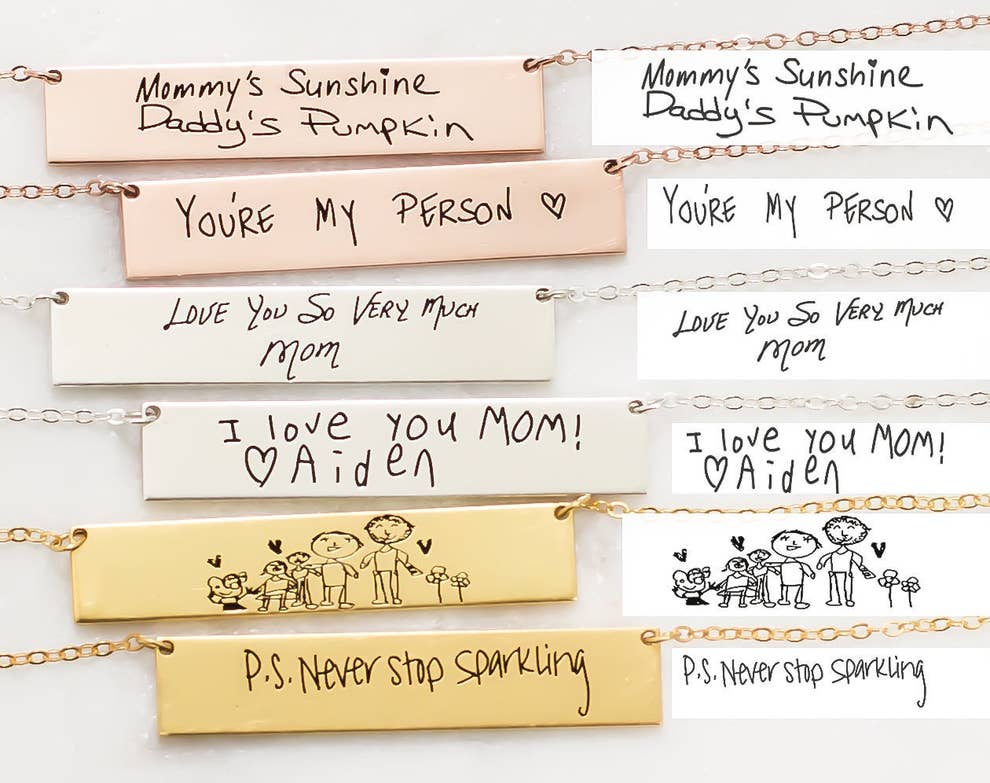 Mommy's Sunshine
Daddy's Pumpkin
Mommy's Sunshine
Daddy's Pumpkin
YOU'RE MY PERSON ♡
YOU'RE MY PERSON ♡
LOVE YOU SO VERY MUCH
MOM
LOVE YOU SO VERY MUCH
MOM
I love you MOM!
♡Aiden
I love you MOM!
♡Aiden
P.S. Never stop sparkling
P.S. Never stop sparkling